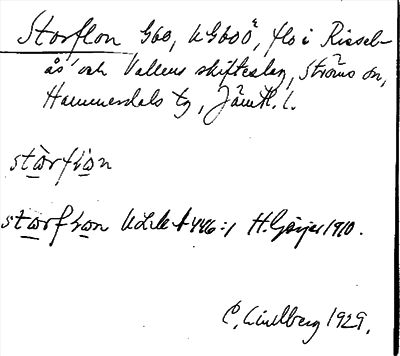 Storflon G60, KG600ª, flo i Rissel-
ås och Vallens skifteslag, Ströms sn,
Hammerdals tg, Jämtl. l.
storflon
storflon H. Geijer 1910.
C. Lindberg 1929.